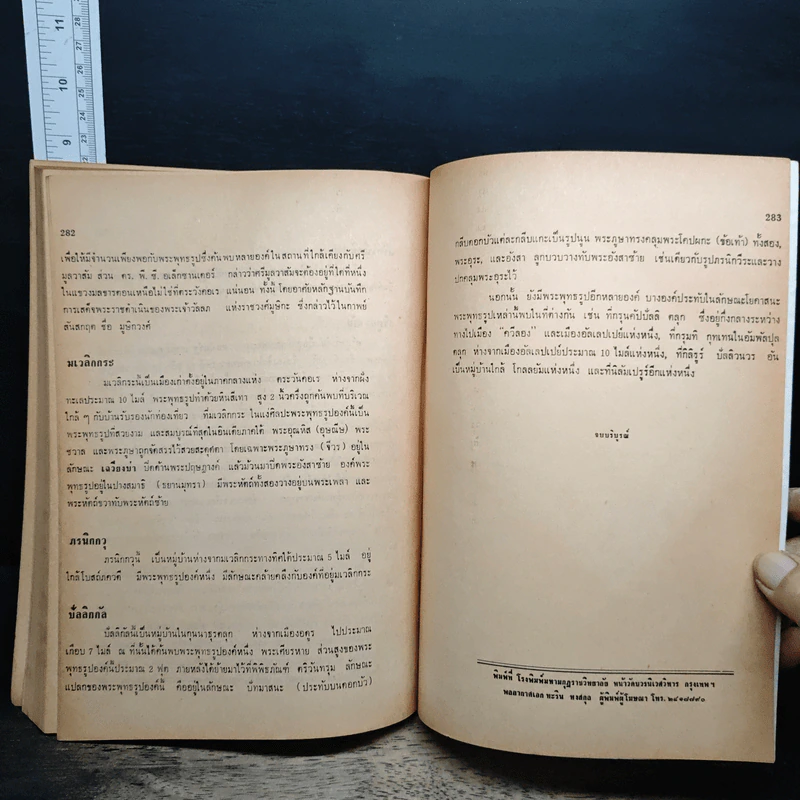 282
เพื่อให้มีจำนวนเพียงพอกับพระพุทธรูปซึ่งค้นพบหลายองค์ในสถานที่ใกล้เคียงกับศรี
มูลวาสัม ส่วน ดร. พี. ซี. อเล็กซานเดอร์ กล่าวว่าศรีมูลวาสัมจะต้องอยู่ที่ใดที่หนึ่ง
ในแขวงมลขารคอนเหนือไม่ใช่ที่ตระวังคอเร แน่นอน ทั้งนี้ โดยอาศัยหลักฐานบันทึก
การเสด็จพระราชดำเนินของพระเจ้าวัลลภ แห่งราชวงศ์มูษิกะ ซึ่งกล่าวไว้ในกาพย์
สันสกฤต ชื่อ มูษิกวงศ์
มเวลิกกระ
มเวลิกระนี้เป็นเมืองเก่าตั้งอยู่ในภาคกลางแห่ง ตระวันคอเร ห่างจากฝั่ง
ทะเลประมาณ 10 ไมล์ พระพุทธรูปทำด้วยหินสีเทา สูง 2 นิ้วครึ่งถูกค้นพบที่บริเวณ
ใกล้ ๆ กับบ้านรับรองนักท่องเที่ยว ที่มเวลิกกระ ในแง่ศิลปะพระพุทธรูปองค์นี้เป็น
พระพุทธรูปที่สวยงาม และสมบูรณ์ที่สุดในอินเดียภาคใต้ พระอุณหิส (อุษณีษ) พระ
ชวาล และพระภูษาถูกจัดสรรไว้สวยสะดุดตา โดยเฉพาะพระภูษาทรง (จีวร) อยู่ใน
ลักษณะ เฉวียงบ่า ปิดด้านพระปฤษฎางค์ แล้วม้วนมาปิดพระอังสาซ้าย องค์พระ
พุทธรูปอยู่ในปางสมาธิ (ธยานมุทรา) มีพระหัตถ์ทั้งสองวางอยู่บนพระเพลา และ
พระหัตถ์ขวาทับพระหัตถ์ซ้าย
ภรนิกกวุ
ภรนิกกวุนี้ เป็นหมู่บ้านห่างจากมเวลิกกระทางทิศใต้ประมาณ 5 ไมล์ อยู่
ใกล้โบสถ์ภควดี มีพระพุทธรูปองค์หนึ่ง มีลักษณะคล้ายคลึงกับองค์ที่อยู่มเวลิกกระ
ปัลลิกกัล
ปัลลิกกัลนี้เป็นหมู่บ้านในกุนนาธุรตลุก ห่างจากเมืองอดูร ไปประมาณ
เกือบ 7 ไมล์ ณ ที่นั้นได้ค้นพบพระพุทธรูปองค์หนึ่ง พระเศียรหาย ส่วนสูงของพระ
พุทธรูปองค์นี้ประมาณ 2 ฟุต ภายหลังได้ย้ายมาไว้ที่พิพิธภัณฑ์ ตริวันทรุม ลักษณะ
แปลกของพระพุทธรูปองค์นี้ คืออยู่ในลักษณะ ปัทมาสนะ (ประทับบนดอกบัว)
283
กลีบดอกบัวแต่ละกลีบแกะเป็นรูปนูน พระภูษาทรงคลุมพระโคปผกะ (ข้อเท้า) ทั้งสอง,
พระอุระ, และอังสา ลูกบวบวางทับพระอังสาซ้าย เช่นเดียวกับรูปภรนิกวีระและวาง
ปกคลุมพระอุระไว้
นอกนั้น ยังมีพระพุทธรูปอีกหลายองค์ บางองค์ประทับในลักษณะโยคาสนะ
พระพุทธรูปเหล่านี้พบในที่ต่างกัน เช่น ที่กรุนคัปปัลลิ ตลุก ซึ่งอยู่กึ่งกลางระหว่าง
ทางไปเมือง "ควีลอง" และเมืองอัลเลปเปย์แห่งหนึ่ง, ที่กรุมที กุทเทนในอัมพัลปุล
ตลุก ห่างจากเมืองอัลเลปเปย์ประมาณ 10 ไมล์แห่งหนึ่ง, ที่กิลิรูร์ ปัลลิวนวร อัน
เป็นหมู่บ้านใกล้ โกลลยัมแห่งหนึ่ง และที่นิลัมเปรูร์อีกแห่งหนึ่ง
จบบริบูรณ์
พิมพ์ที่ โรงพิมพ์มหามกุฏราชวิทยาลัย หน้าวัดบวรนิเวศวิหาร กรุงเทพฯ
พลอากาศเอก หะริน หงสกุล ผู้พิมพ์ผู้โฆษณา โทร. ๒๘๑๘๙๙๐
11
10
9
28
27
26
25
24
23
22